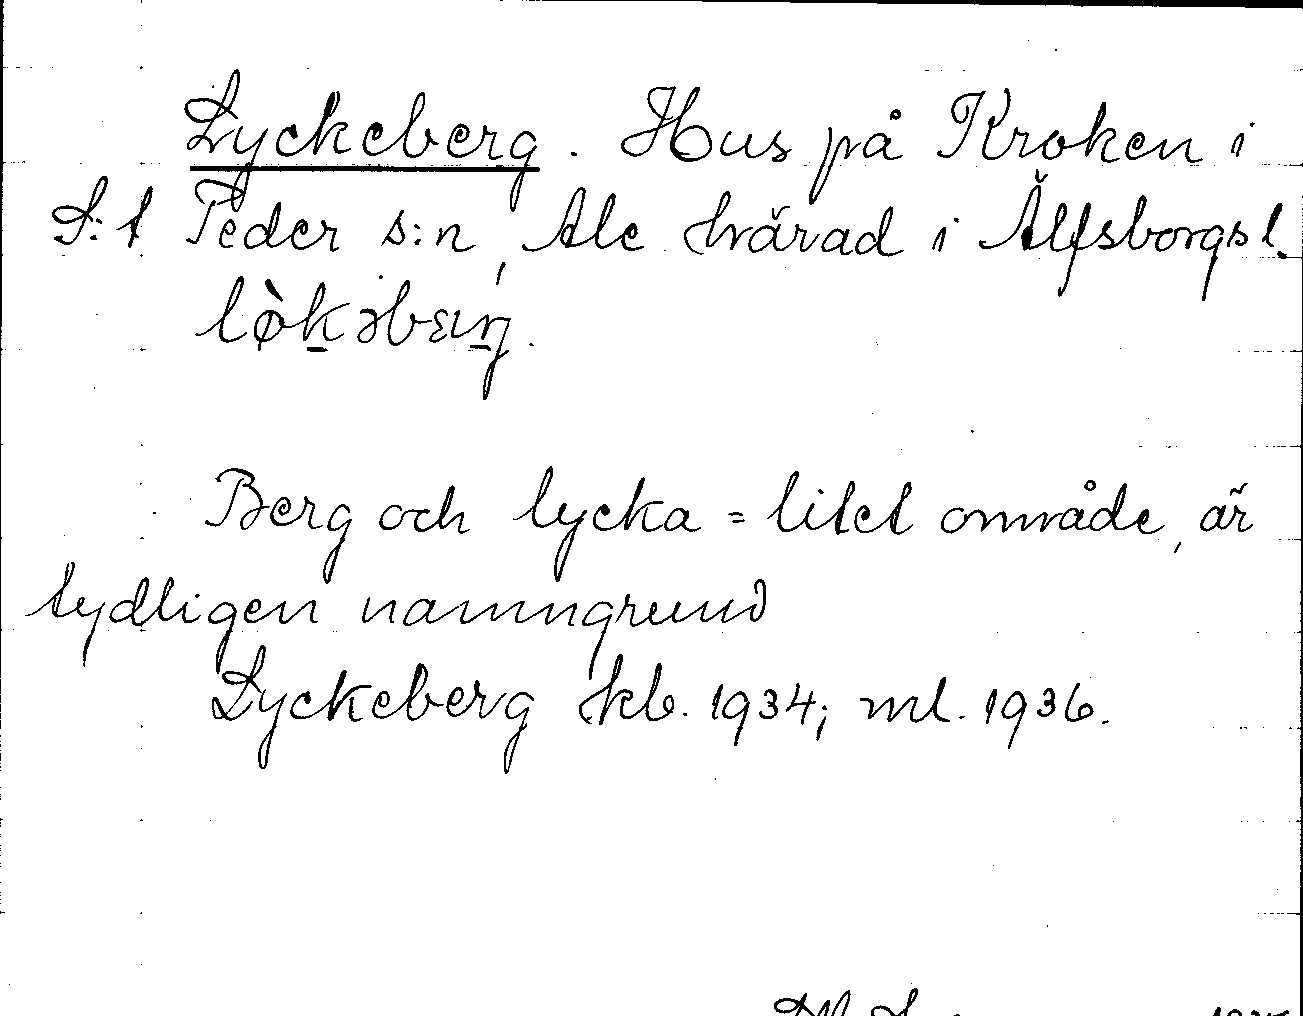 Lyckeberg. Hus på Kroken i
S:t Peder s:n, Ale härad i Älfsborgs l.
Berg och lycka = litet område, är
tydligen namngrund
Lyckeberg kb. 1934; ml. 1936.